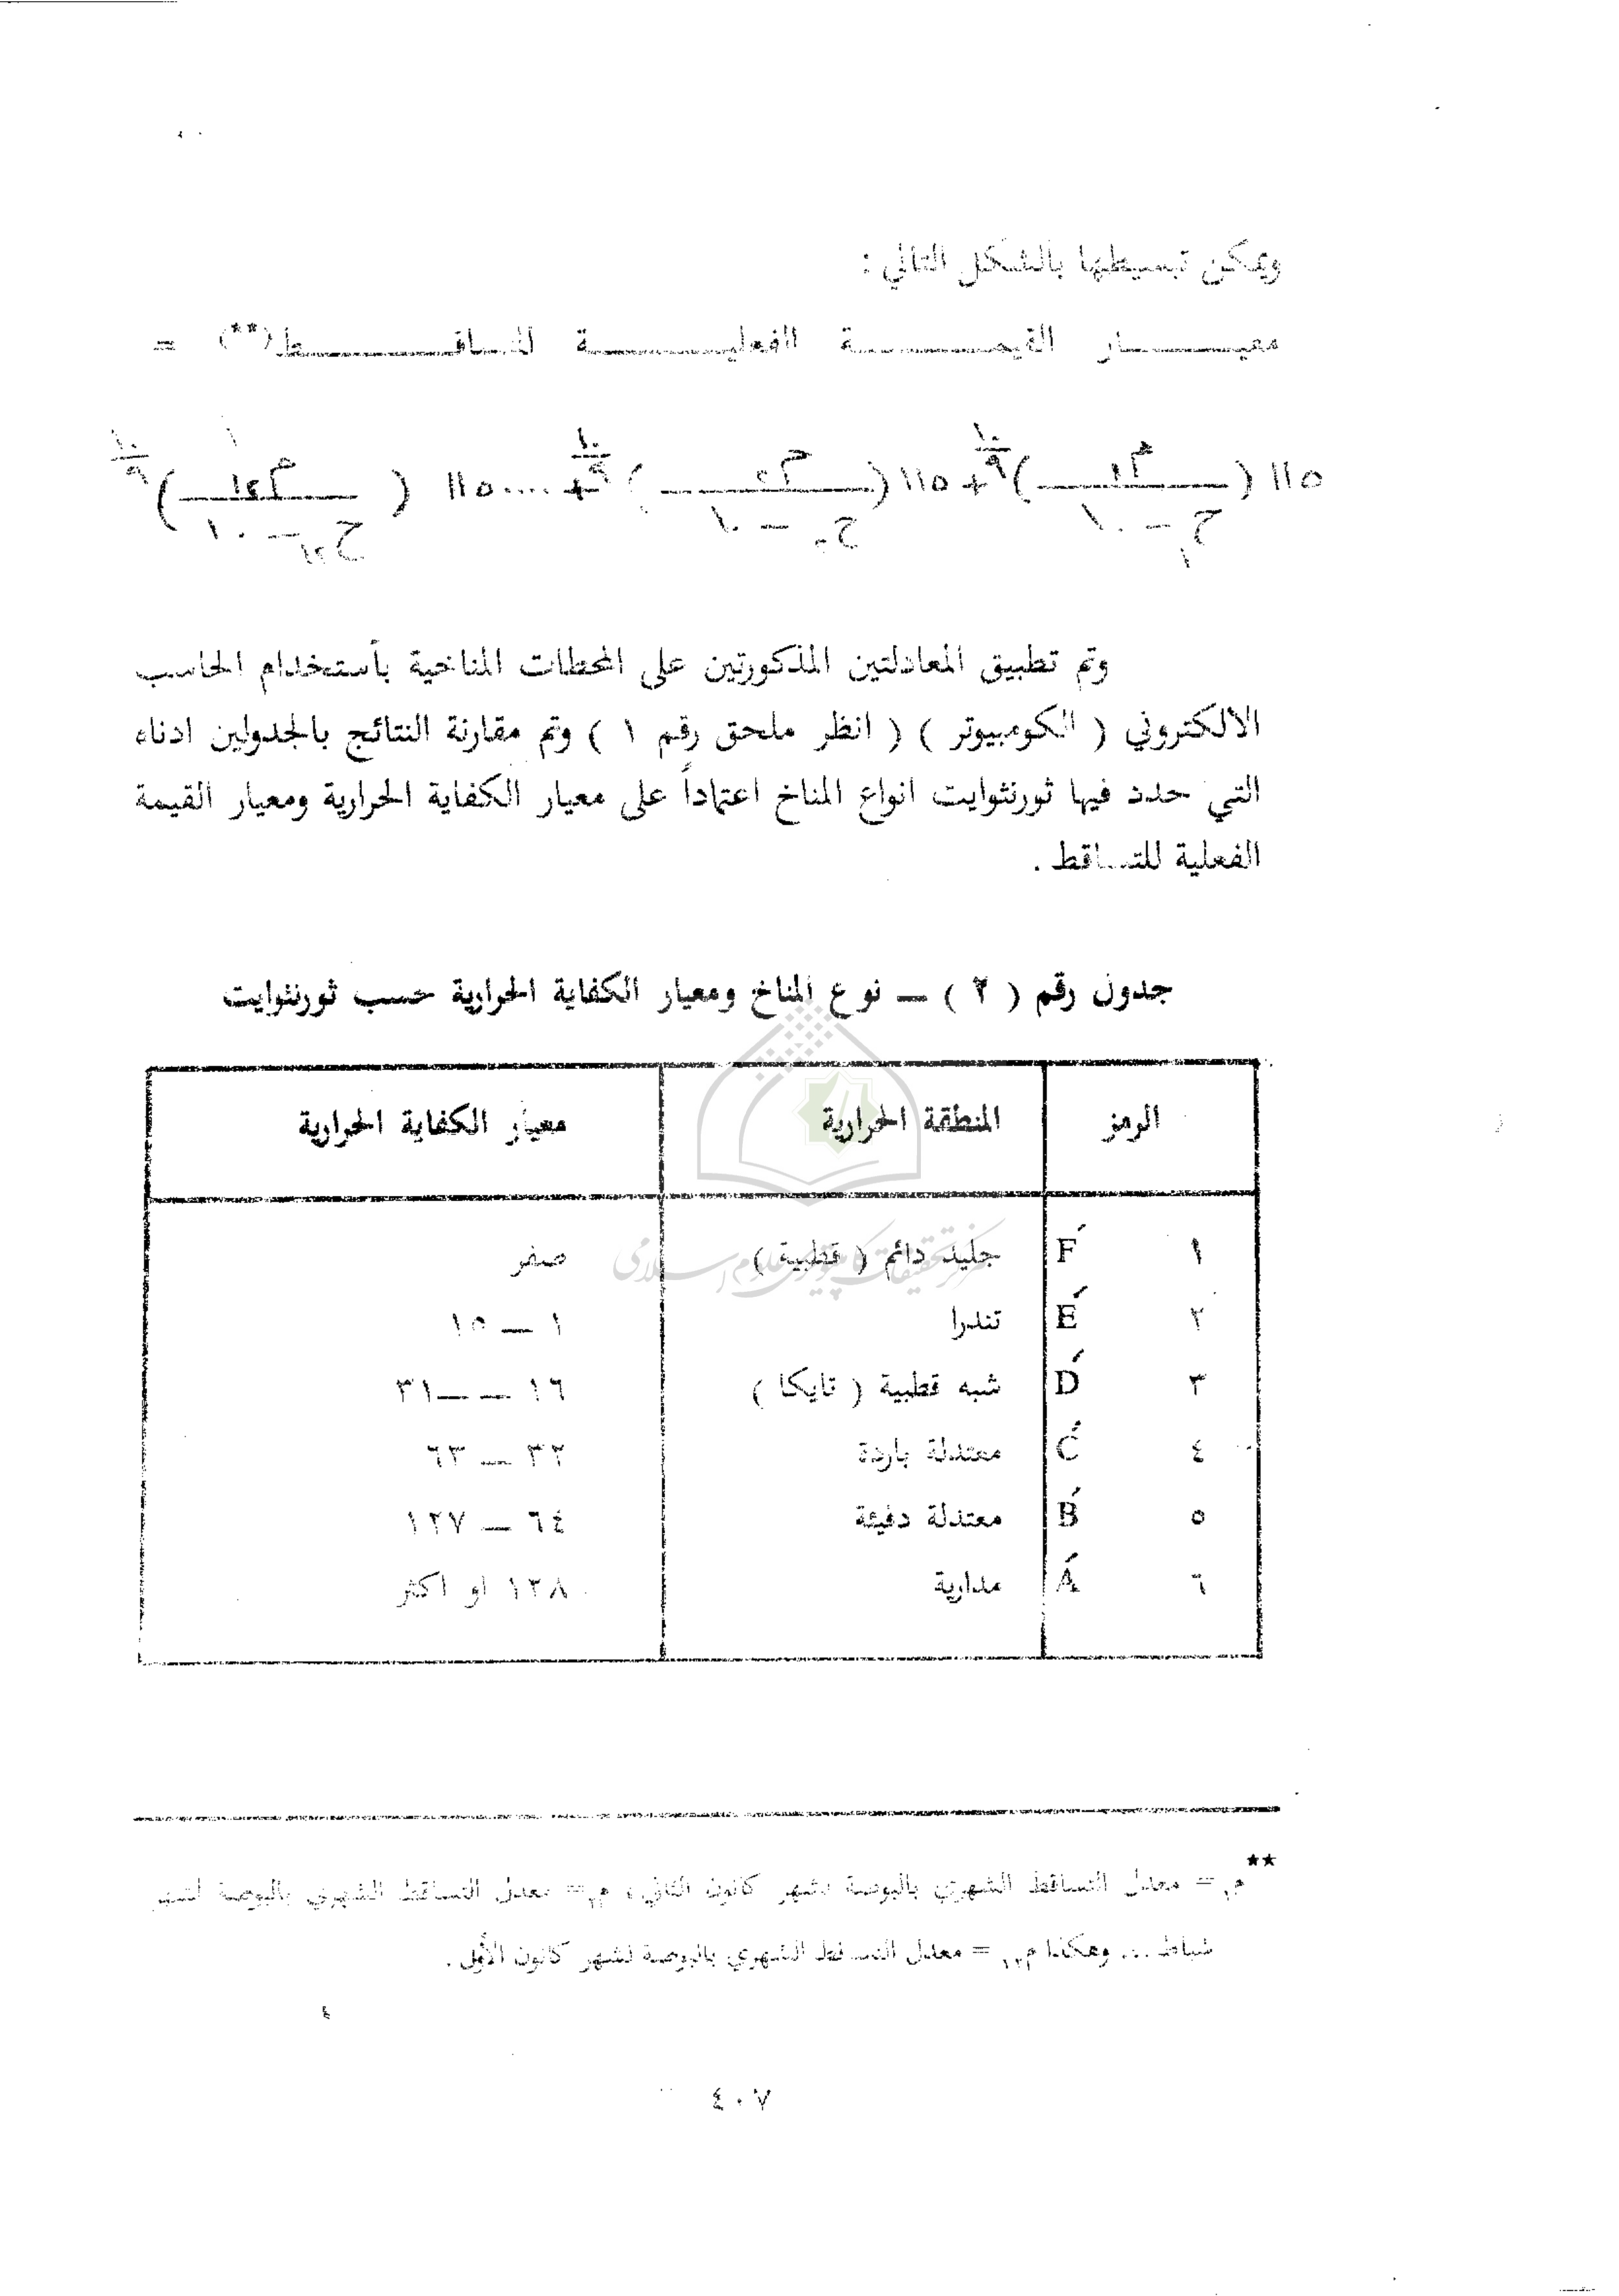 ويمكن تبسيطها بالشكل التالي :
معيــــار القيمــــة الفعليــــة للتساقــــط(**) =
١١٥ (م١ / ح١ − ١٠)^١٠/٩ + ١١٥ (م٢ / ح٢ − ١٠)^١٠/٩ + .... ١١٥ (م١٢ / ح١٢ − ١٠)^١٠/٩
وتم تطبيق المعادلتين المذكورتين على المحطات المناخية بأستخدام الحاسب
الالكتروني ( الكومبيوتر ) ( انظر ملحق رقم ١ ) وتم مقارنة النتائج بالجدولين ادناه
التي حدد فيها ثورنثوايت انواع المناخ اعتماداً على معيار الكفاية الحرارية ومعيار القيمة
الفعلية للتساقط .
جدول رقم ( ٢ ) ــ نوع المناخ ومعيار الكفاية الحرارية حسب ثورنثوايت
الرمز المنطقة الحرارية معيار الكفاية الحرارية
١ F́ جليد دائم ( قطبية ) صفر
٢ É تندرا ١ ــ ١٥
٣ D́ شبه قطبية ( تايكا ) ١٦ ــ ٣١
٤ Ć معتدلة باردة ٣٢ ــ ٦٣
٥ B́ معتدلة دفيئة ٦٤ ــ ١٢٧
٦ Á مدارية ١٢٨ او اكثر
مركز تحقيقات كامپيوتری علوم اسلامی
** م١ = معدل التساقط الشهري بالبوصة لشهر كانون الثاني، م٢ = معدل التساقط الشهري بالبوصة لشهر
شباط ... وهكذا م١٢ = معدل التساقط الشهري بالبوصة لشهر كانون الأول .
٤٠٧